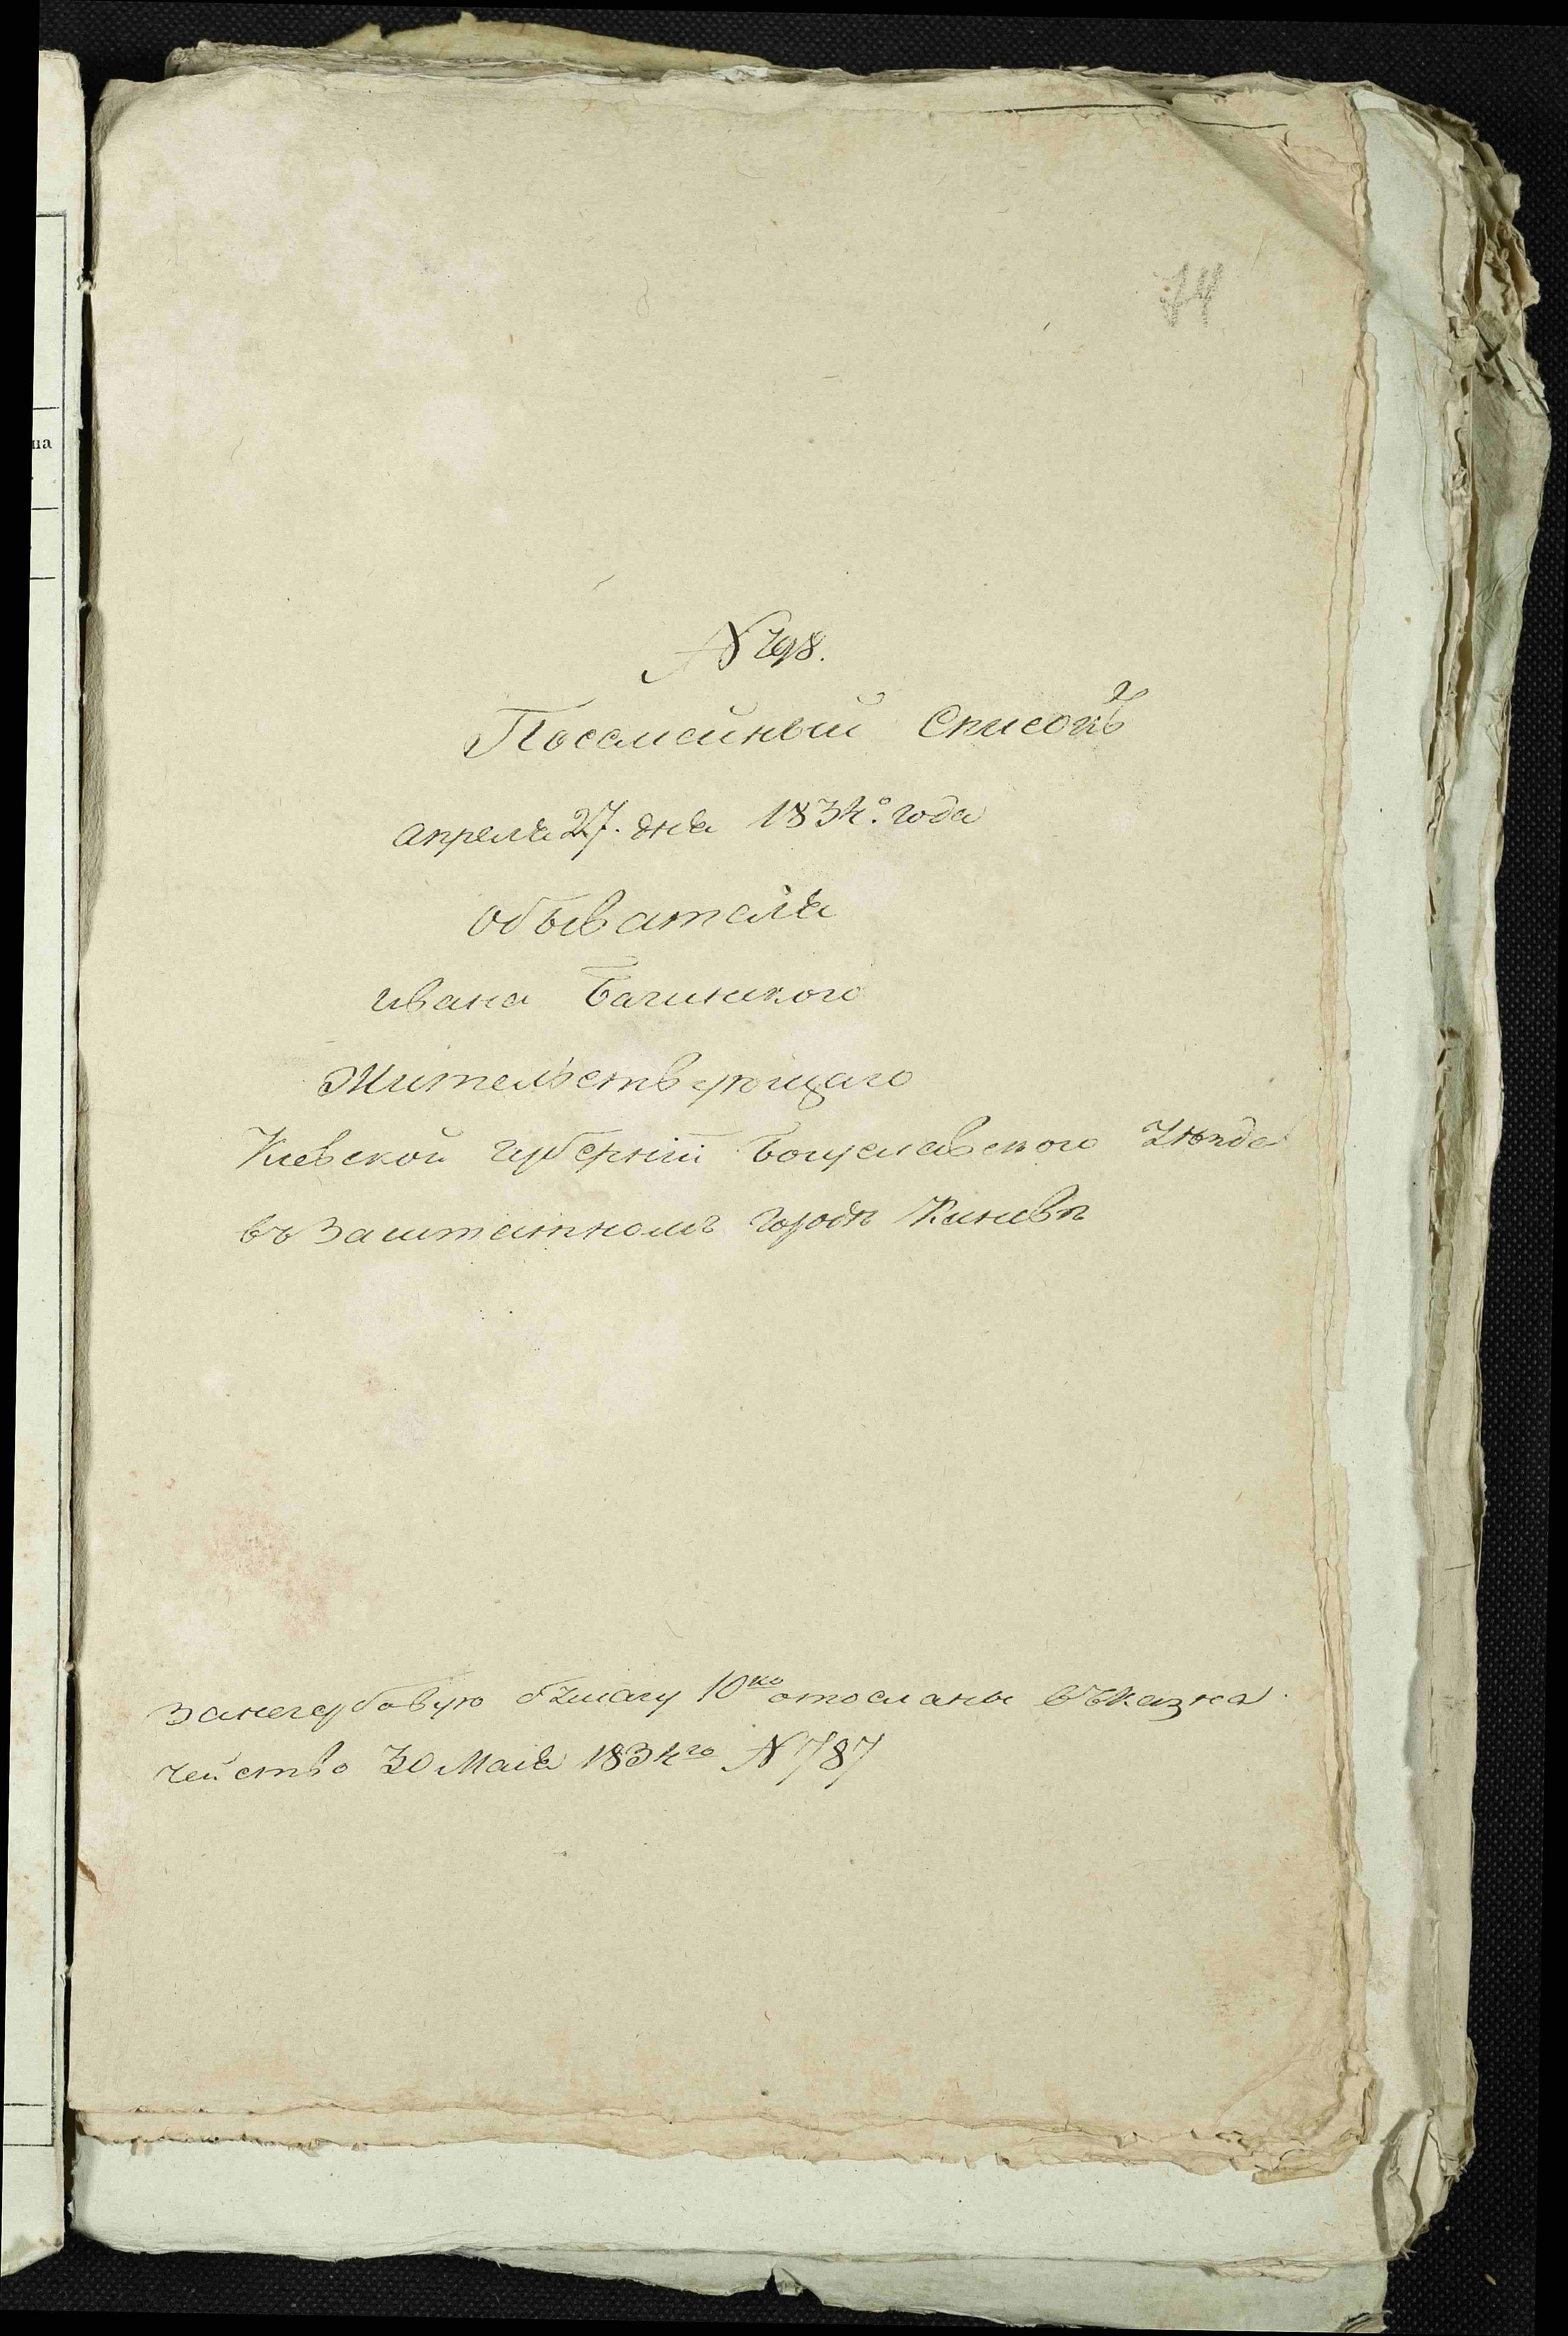 74
на
N 298.
Посемейный Списокъ
апреля 27. дня 1834.º года
обывателя
ивана Багинского
Жительствующаго
Киевской губернїи Богуславского Уѣзда
въ Заштатномъ городѣ Каневѣ
занегербовую бумагу 10ко отосланы въ казна
чейство 30 Мая 1834го N 787